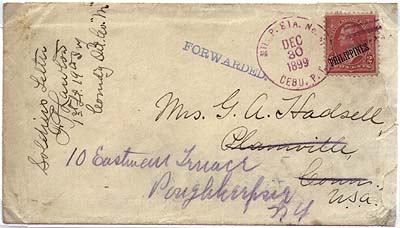 Soldier's Letter
1st Lt. 19
Comdg
FORWARDED.
MIL. P. STA. No.
DEC
30
1899
CEBU, P. I.
PHILIPPINES
2
Mrs. G. A. Hadsell
Plainville,
Conn.
U.S.A.
10 Eastman Terrace
Poughkeepsie
N.Y.